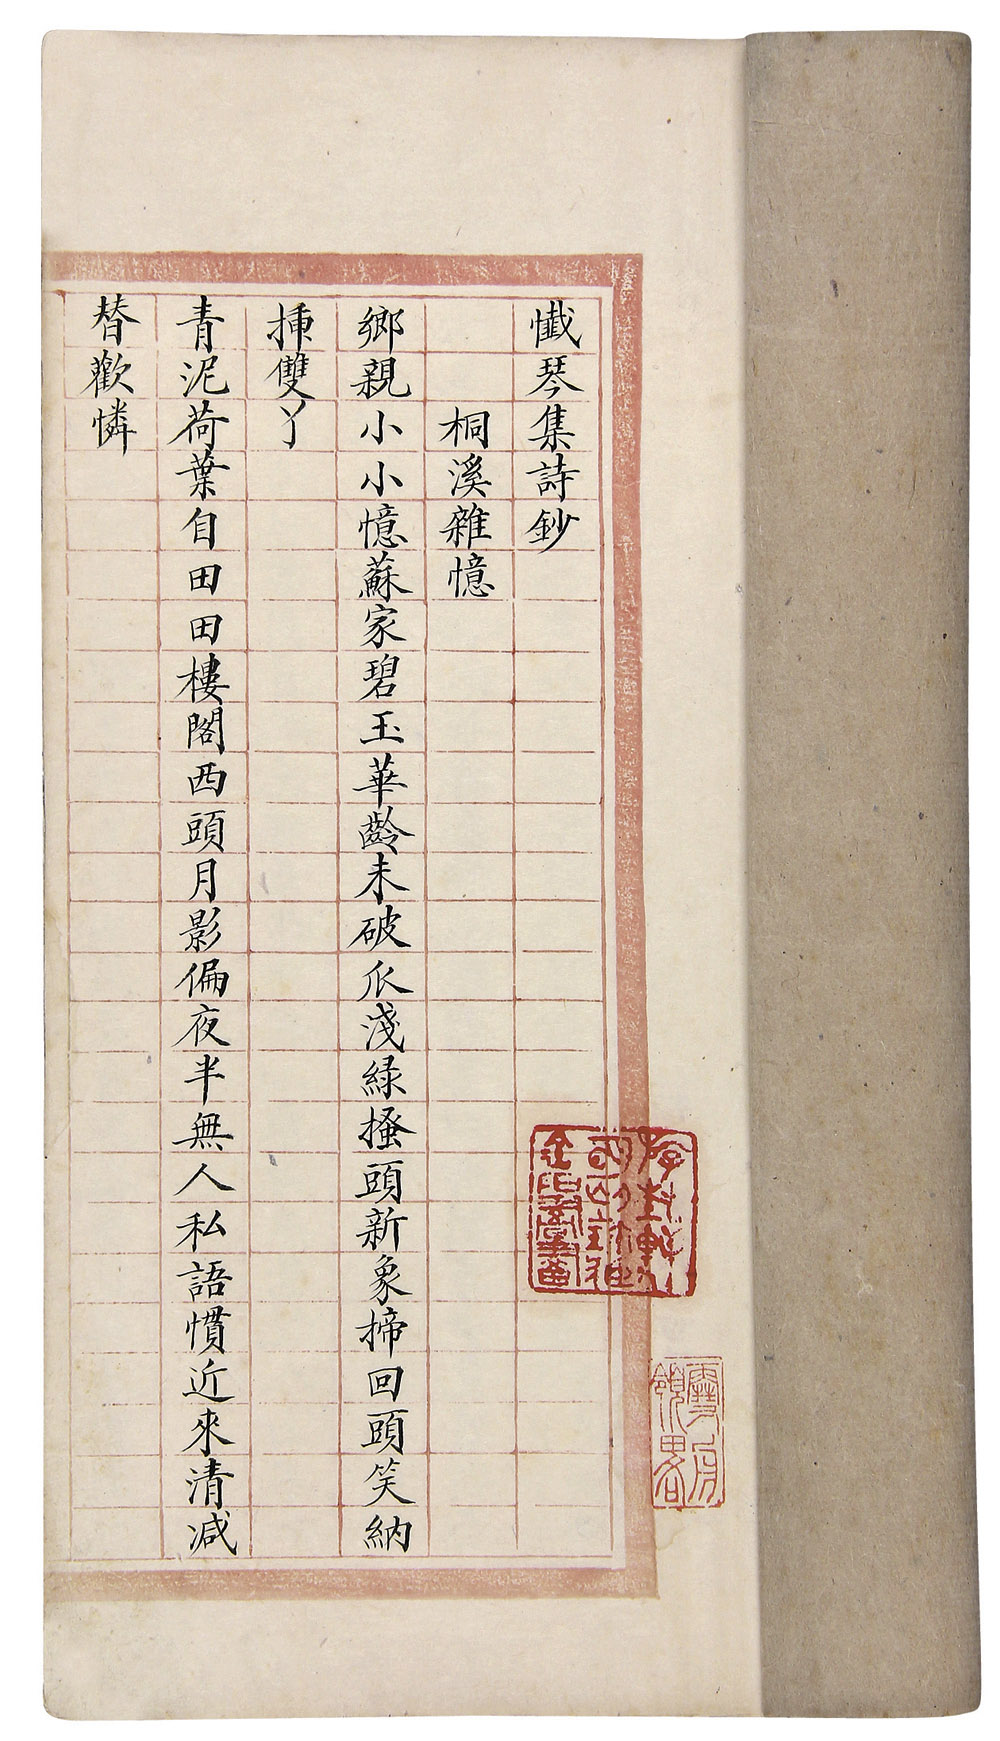 懺琴集詩鈔
桐溪雜憶
鄉親小小憶蘇家碧玉華齡未破瓜淺綠搔頭新象揥回頭笑納
揷雙丫
青泥荷葉自田田樓閣西頭月影偏夜半無人私語慣近來清減
替歡憐